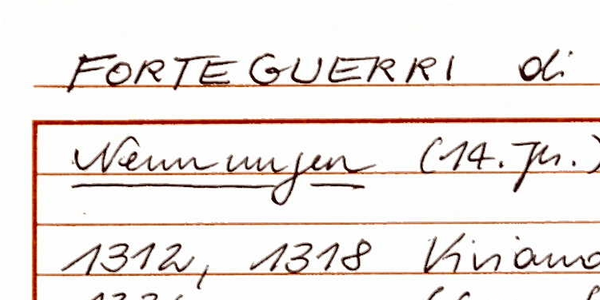 FORTEGUERRI di
Nennungen (14. Jh.)
1312, 1318 Viviano